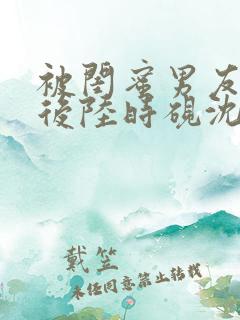 被閨蜜男友
後陸時硯沈
戴笠
未經同意禁止轉載